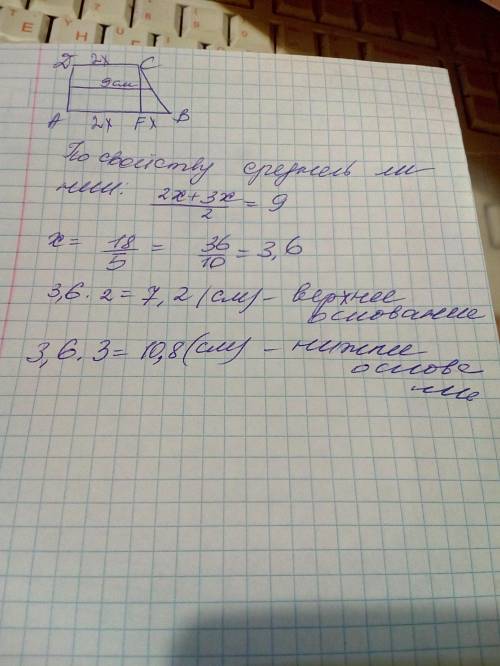 D 2x C
9см
A 2x F x B
По свойству средней ли
нии: 2x+3x/2 = 9
x= 18/5 = 36/10 = 3,6
3,6·2=7,2(см)- верхнее
основание
3,6·3=10,8(см) - нижнее
основа
ние